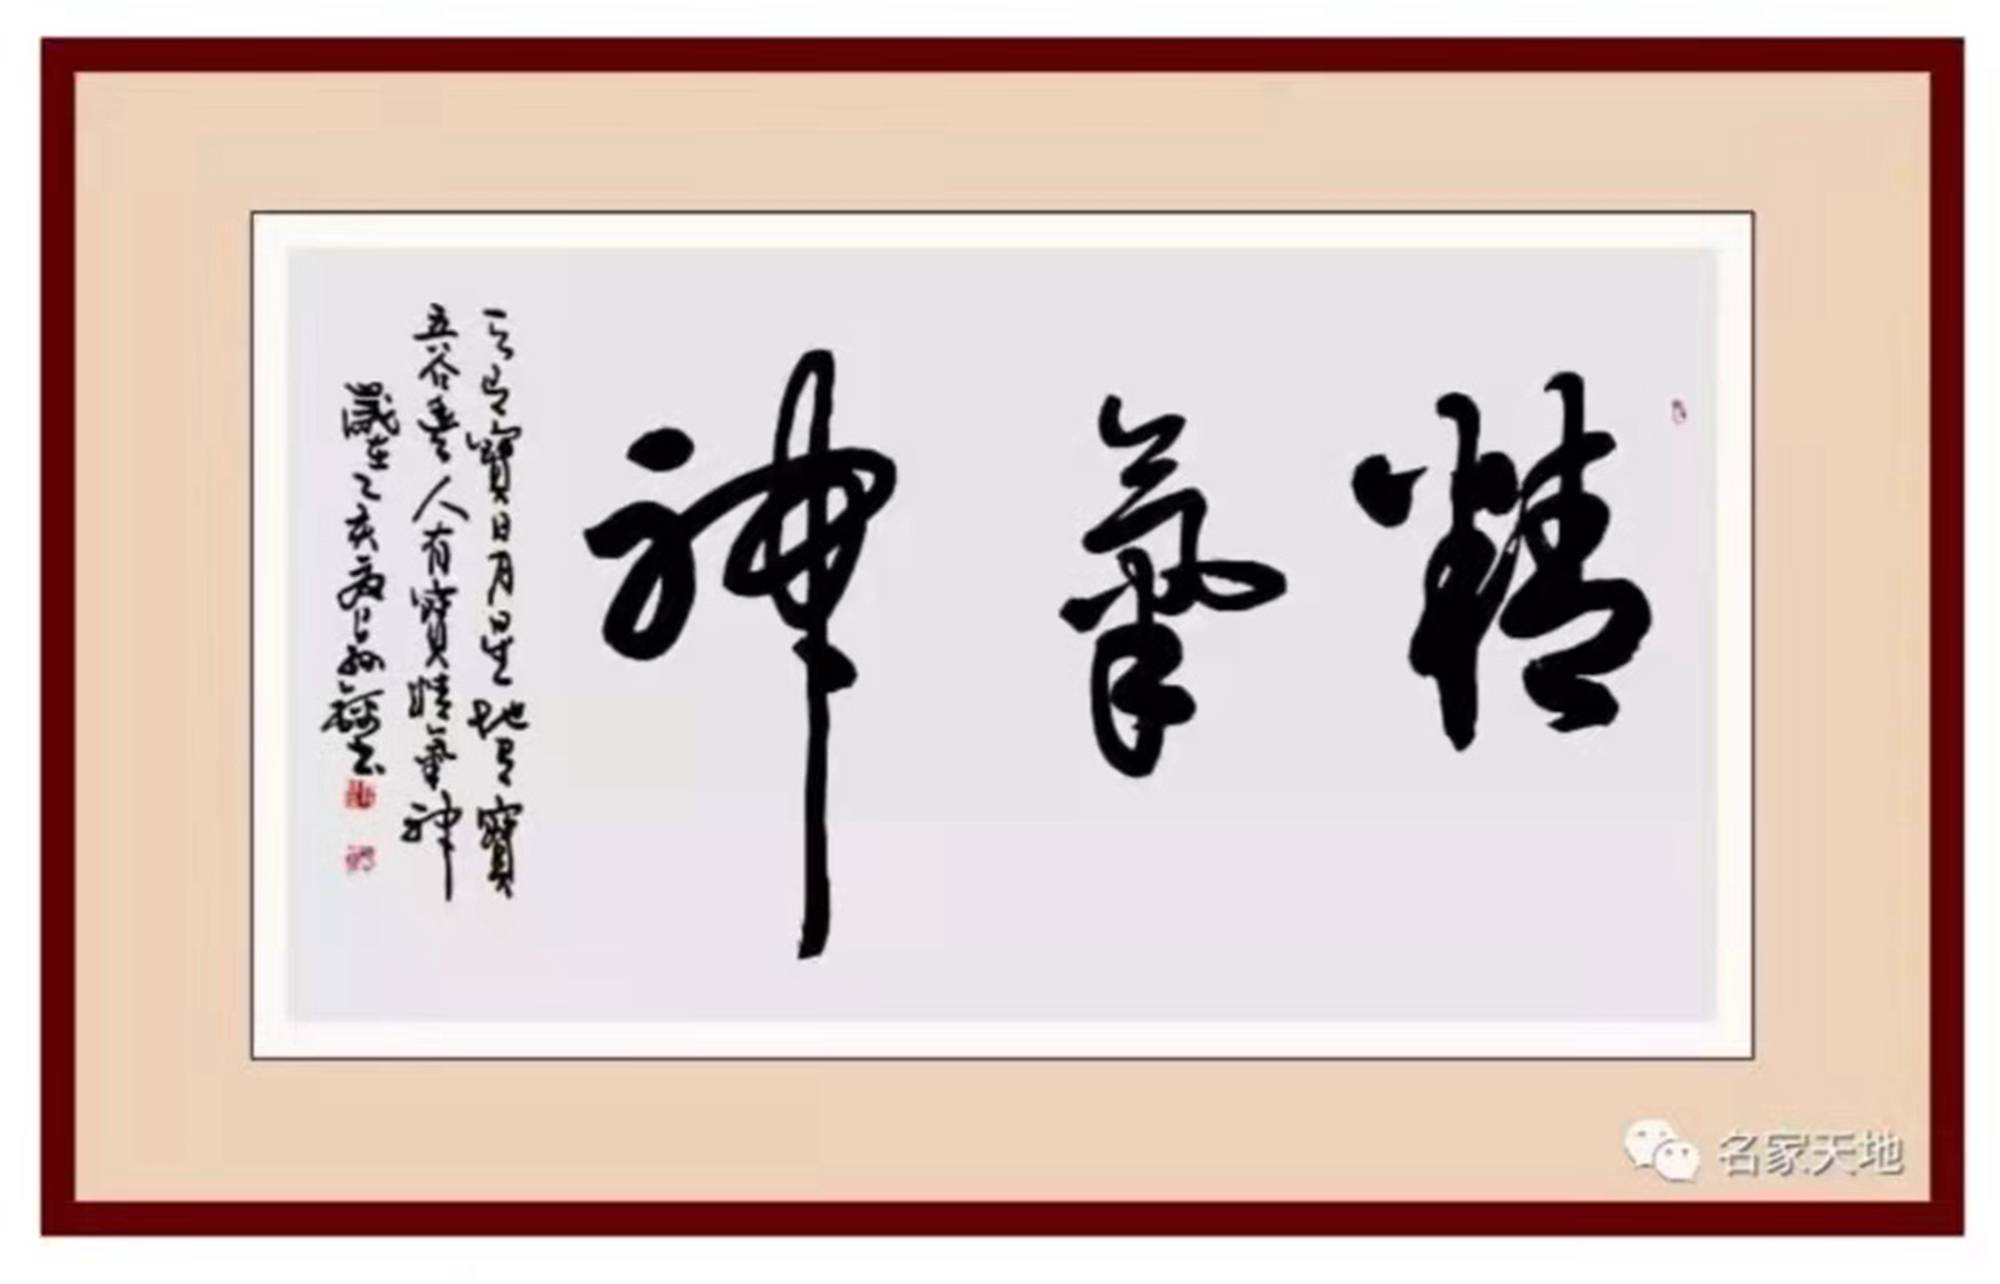 精氣神
天有寶日月星地有寶
五谷豐人有寶精氣神
歲在己亥夏日孫
名家天地